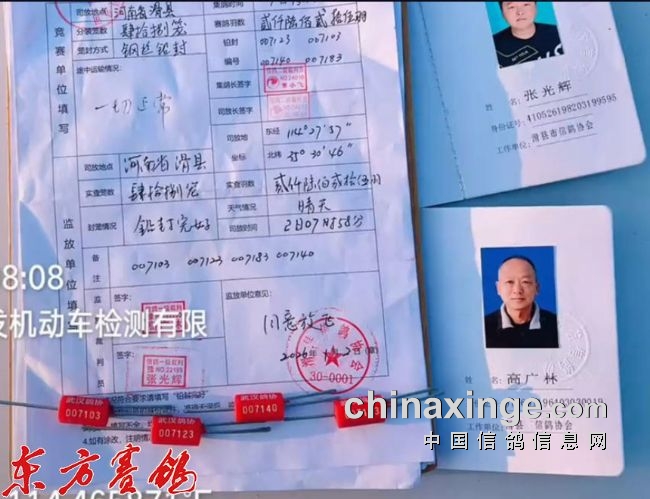 司放地点 河南省滑县
分装笼数 肆拾捌笼
笼封方式 钢丝铅封
途中运输情况:
一切正常
竞赛单位填写
集鸽时间
赛鸽羽数 贰仟陆佰贰拾伍羽
铅封 007123 007103
编号 007140 007183
集鸽长签字
司放长签字
司放地 东经 114°27′37″
坐标 北纬 35°30′46″
监放单位填写
司放地点 河南省滑县
实查笼数 肆拾捌笼
实查羽数 贰仟陆佰贰拾伍羽
天气情况 晴天
封笼情况 铅封完好
司放时间 2日07时58分
备注 007103 007123 007183 007140
签字:
签字:
信鸽一级裁判
张光辉
监放单位意见:
同意放飞
30-0001
姓名: 张光辉
身份证号: 410526198203199595
工作单位: 滑县市信鸽协会
姓名: 高广林
工作单位: 滑县信鸽协会
8:08
发机动车检测有限
武汉鸽协
007103
武汉鸽协
007123
武汉鸽协
007140
4.如有涂改,注明情
东方赛鸽
chinaxinge.com
中国信鸽信息网